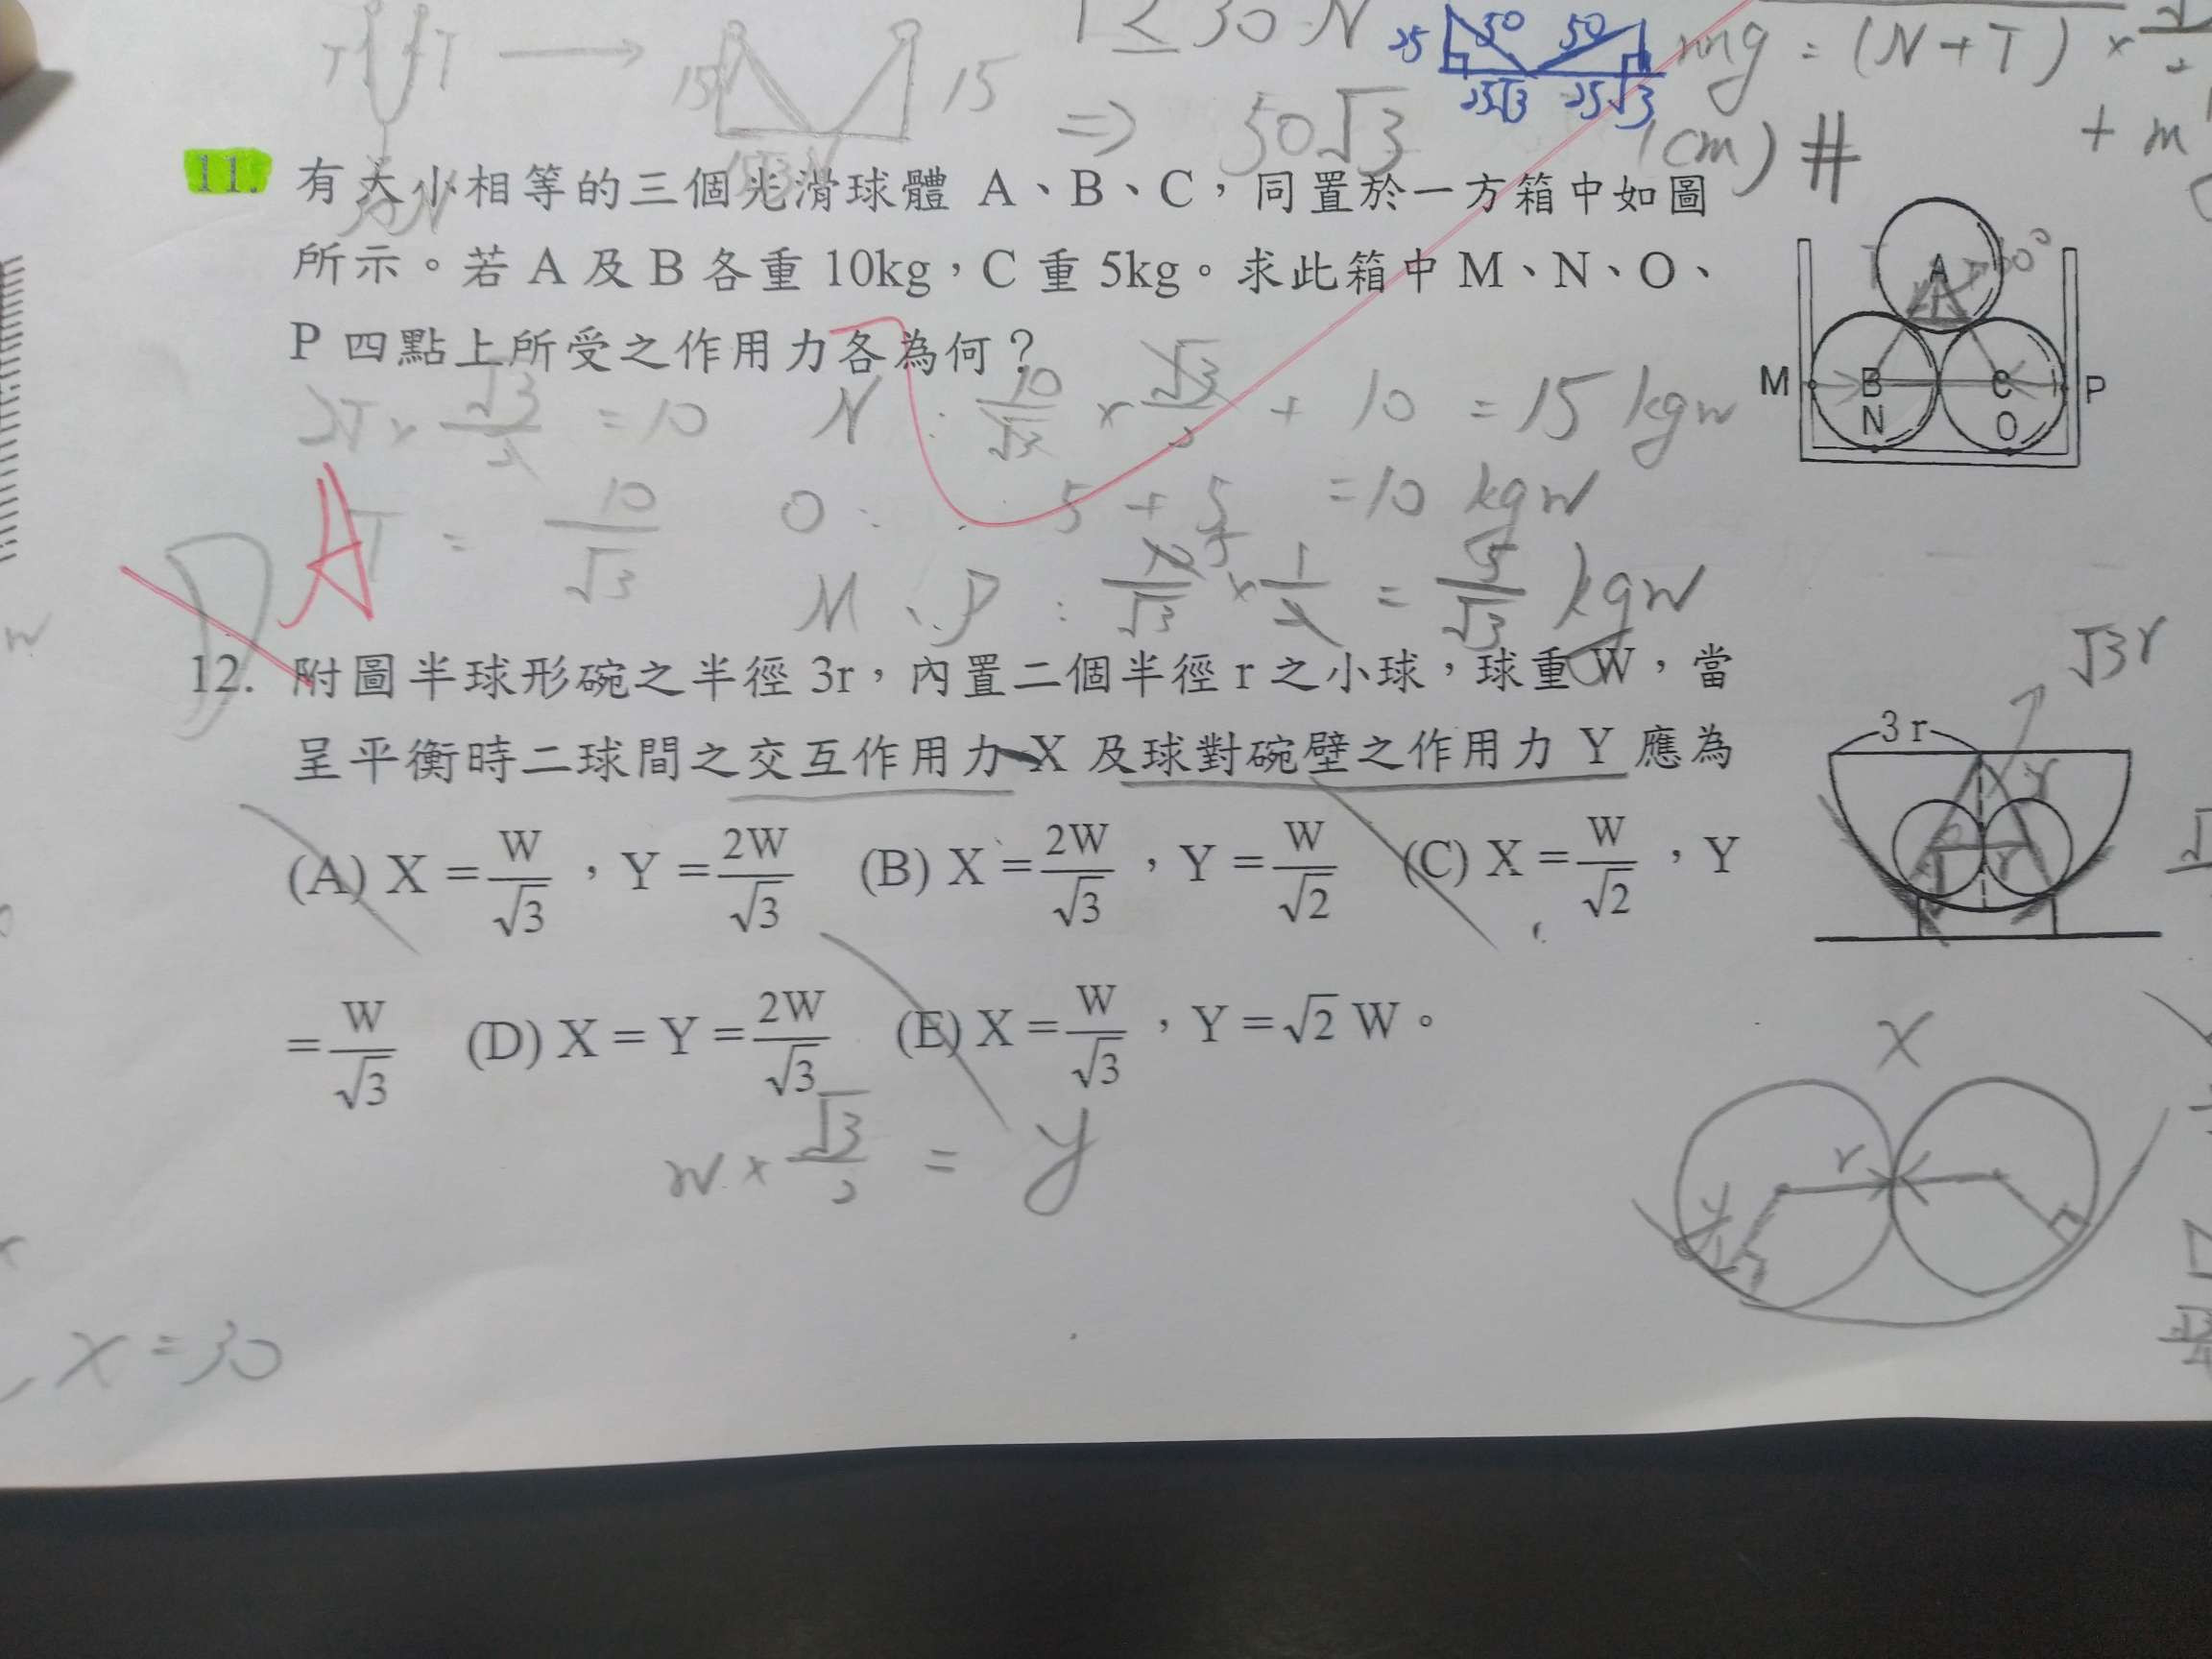 T T → 15 15 T ≤ 30 N 25 50 50 mg = (N+T) ×
⇒ 50√3 25√3 25√3 (cm) # + m
11. 有大小相等的三個光滑球體 A、B、C，同置於一方箱中如圖
所示。若 A 及 B 各重 10kg，C 重 5kg。求此箱中 M、N、O、
P 四點上所受之作用力各為何？
A
M B C P
N O
2T × √3/2 = 10 N : 10/√3 × √3/2 + 10 = 15 kgw
T = 10/√3 O : 5 + 5 = 10 kgw
M、P : 10/√3 × 1/2 = 5/√3 kgw
D A
12. 附圖半球形碗之半徑 3r，內置二個半徑 r 之小球，球重 W，當
呈平衡時二球間之交互作用力 X 及球對碗壁之作用力 Y 應為
(A) X = W/√3 ，Y = 2W/√3 (B) X = 2W/√3 ，Y = W/√2 (C) X = W/√2 ，Y
= W/√3 (D) X = Y = 2W/√3 (E) X = W/√3 ，Y = √2 W。
√3r
3r
r r
w × √3/2 = y
x
r
y
x = 30